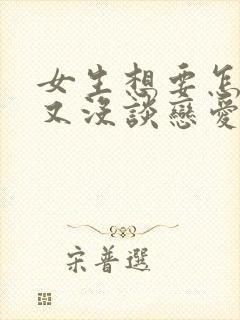 女生想要怎
又沒談戀愛
宋普選